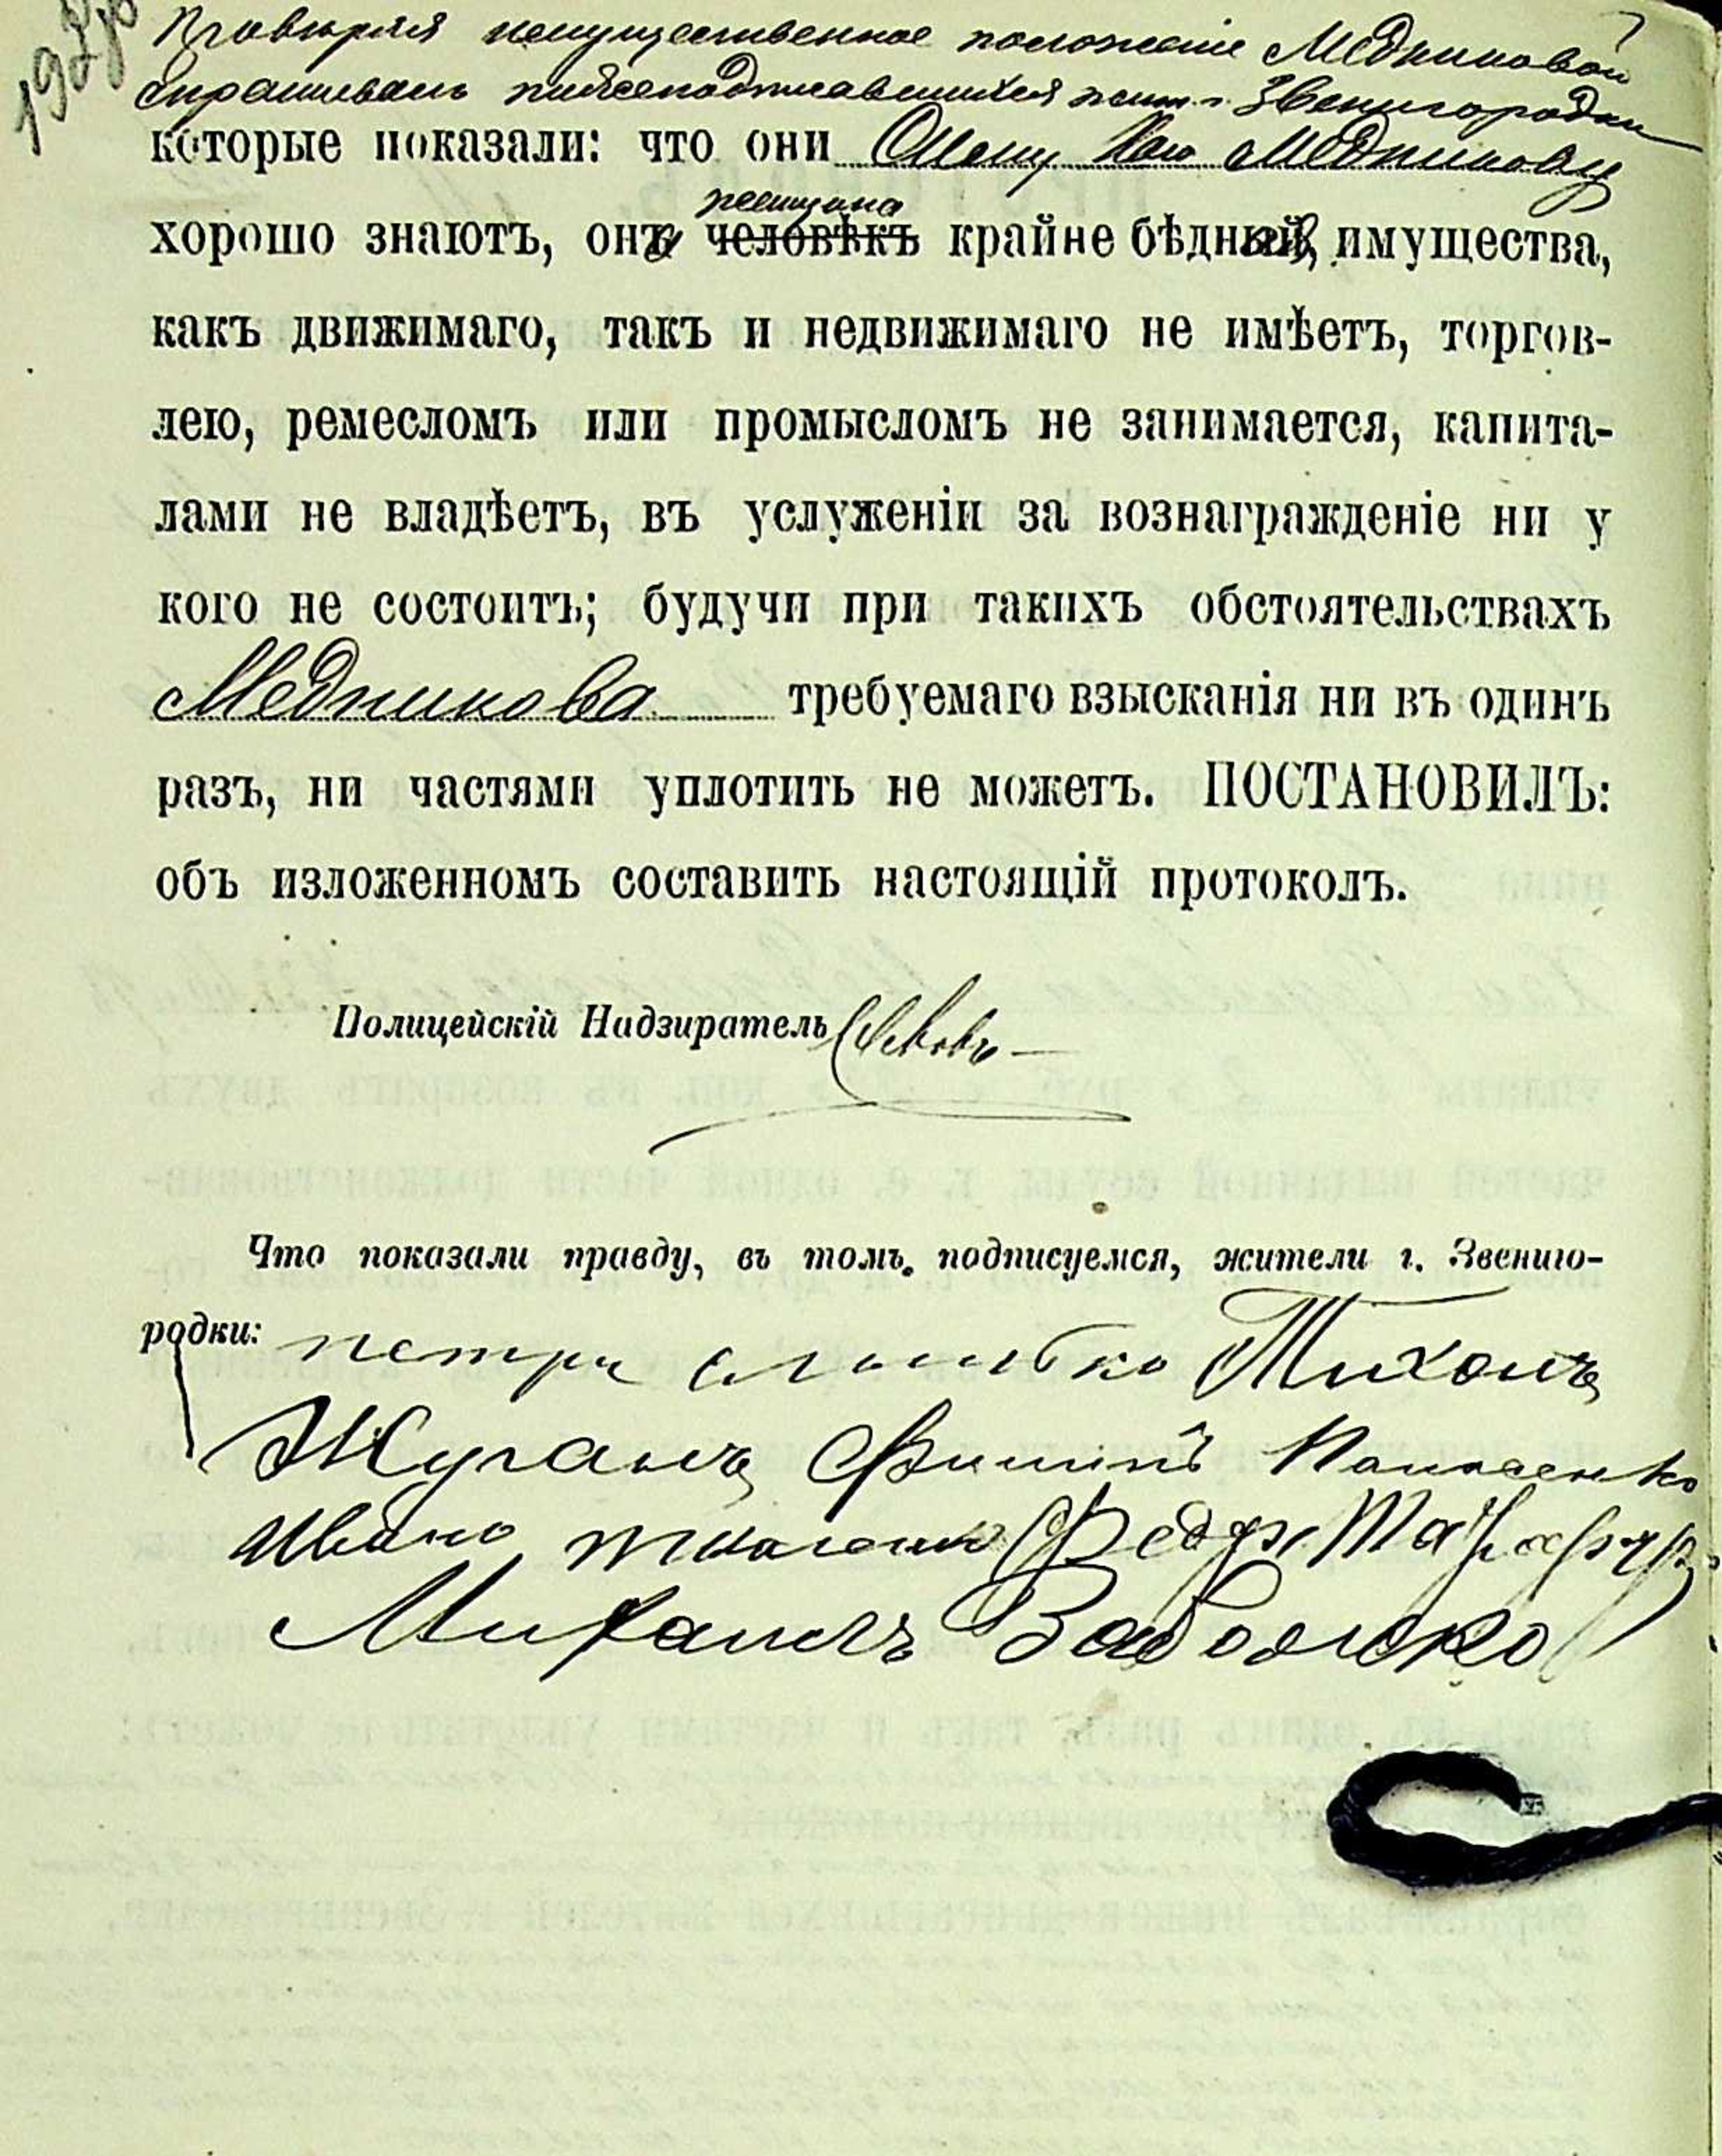 Провѣряя имущественное положеніе Медниковой
спрашивалъ нижеподписавшихся жит. г. Звенигородки
которые показали: что они Медникову
хорошо знаютъ, она женщина человѣкъ крайне бѣдная, имущества,
какъ движимаго, такъ и недвижимаго не имѣетъ, торгов-
лею, ремесломъ или промысломъ не занимается, капита-
лами не владѣетъ, въ услуженіи за вознагражденіе ни у
кого не состоитъ; будучи при такихъ обстоятельствахъ
Медникова требуемаго взысканія ни въ одинъ
разъ, ни частями уплотить не можетъ. ПОСТАНОВИЛЪ:
объ изложенномъ составить настоящій протоколъ.
Полицейскій Надзиратель
Что показали правду, въ томъ. подписуемся, жители г. Звениго-
родки: петръ Тихонъ
Журанъ Филипъ
Ивано Федор
Михаилъ